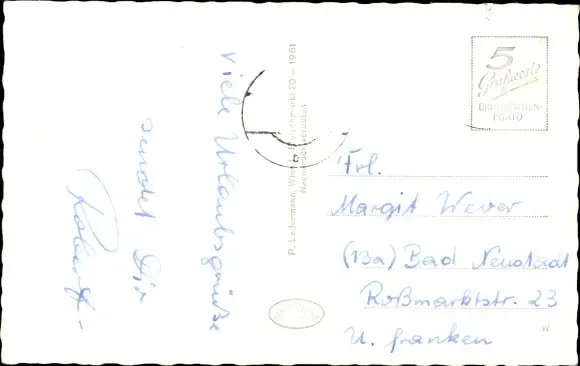 Viele Urlaubsgrüße
sendet Dir
Robert
P. Ledermann, Wien I, Fleischmarkt 20 — 1961
Nachdruck verboten
5
Grußworte
DRUCKSACHEN-
PORTO
Frl.
Margit Wever
(13a) Bad Neustadt
Roßmarktstr. 23
U. franken
W